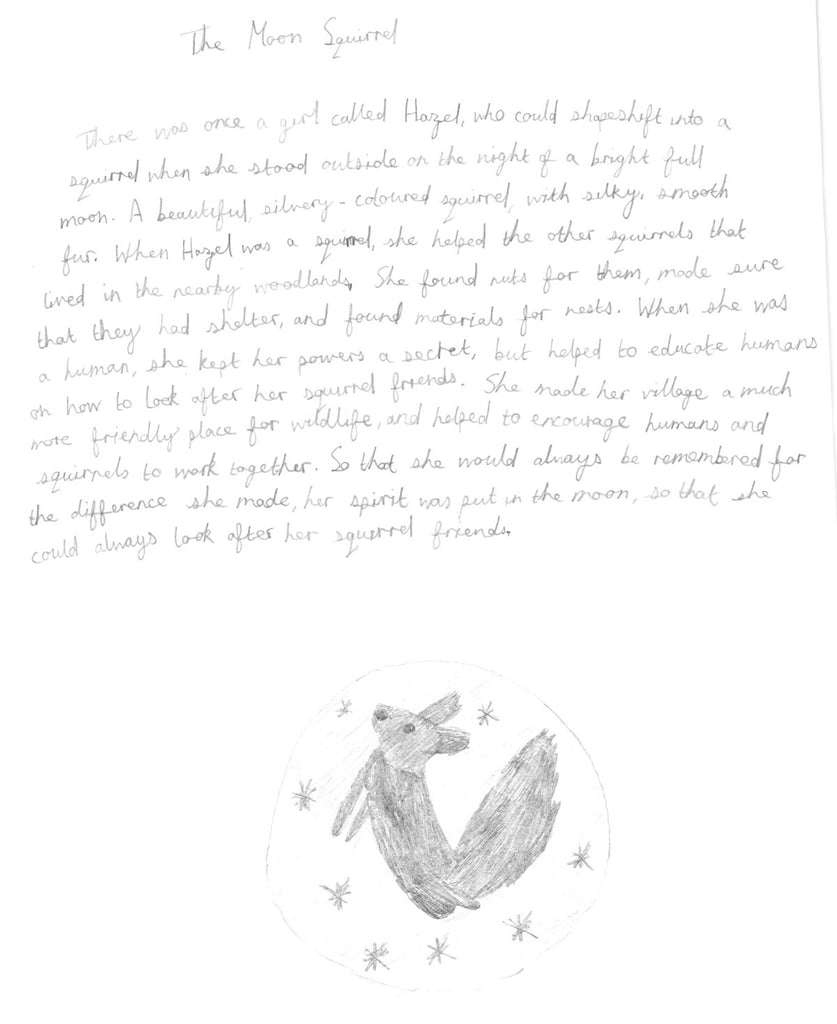 The Moon Squirrel
There was once a girl called Hazel, who could shapeshift into a
squirrel when she stood outside on the night of a bright full
moon. A beautiful, silvery-coloured squirrel, with silky, smooth
fur. When Hazel was a squirrel, she helped the other squirrels that
lived in the nearby woodlands. She found nuts for them, made sure
that they had shelter, and found materials for nests. When she was
a human, she kept her powers a secret, but helped to educate humans
on how to look after her squirrel friends. She made her village a much
more friendly place for wildlife, and helped to encourage humans and
squirrels to work together. So that she would always be remembered for
the difference she made, her spirit was put in the moon, so that she
could always look after her squirrel friends.